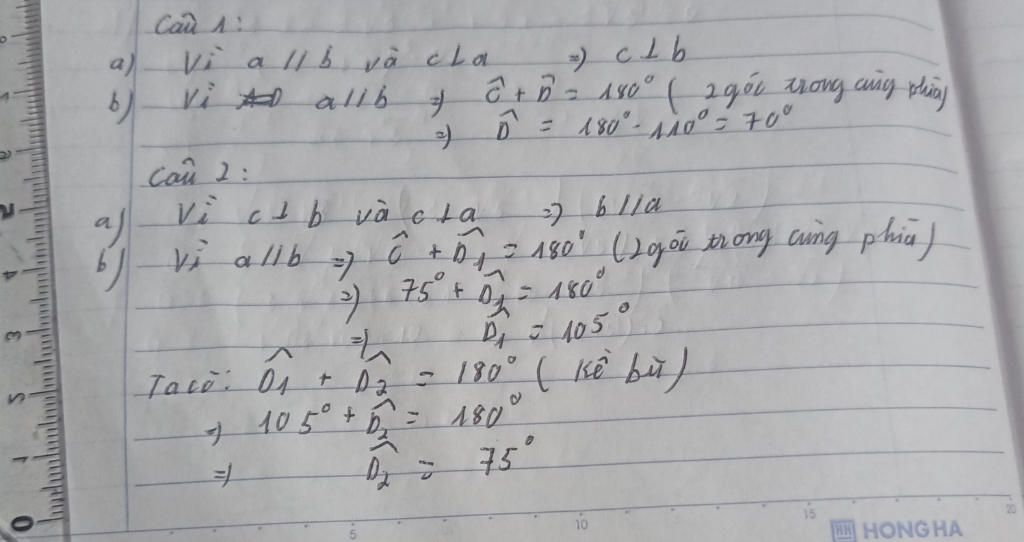 Câu 1:
a) Vì a // b và c ⊥ a => c ⊥ b
b) Vì a // b => Ĉ + D̂ = 180° ( 2 góc trong cùng phía)
=> D̂ = 180° - 110° = 70°
Câu 2:
a) Vì c ⊥ b và c ⊥ a => b // a
b) Vì a // b => Ĉ + D̂₁ = 180° (2 góc trong cùng phía)
=> 75° + D̂₁ = 180°
=> D̂₁ = 105°
Ta có: D̂₁ + D̂₂ = 180° ( Kề bù)
=> 105° + D̂₂ = 180°
=> D̂₂ = 75°
5 10 15 20
HH HONG HA
0 1 5 3 4 2